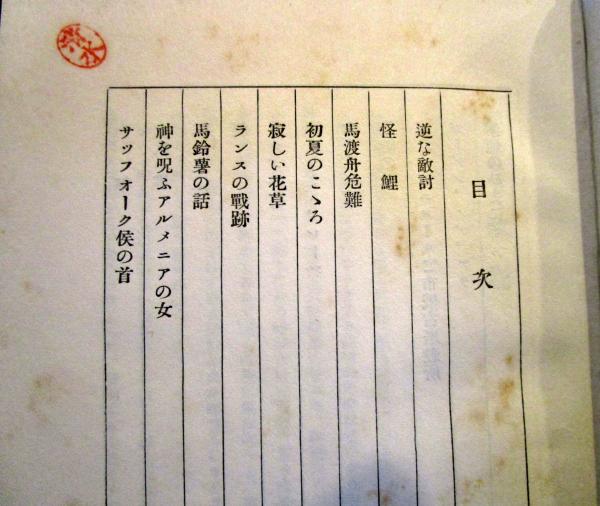 目次
逆な敵討
怪鯉
馬渡舟危難
初夏のこゝろ
寂しい花草
ランスの戰跡
馬鈴薯の話
神を呪ふアルメニアの女
サッフォーク侯の首